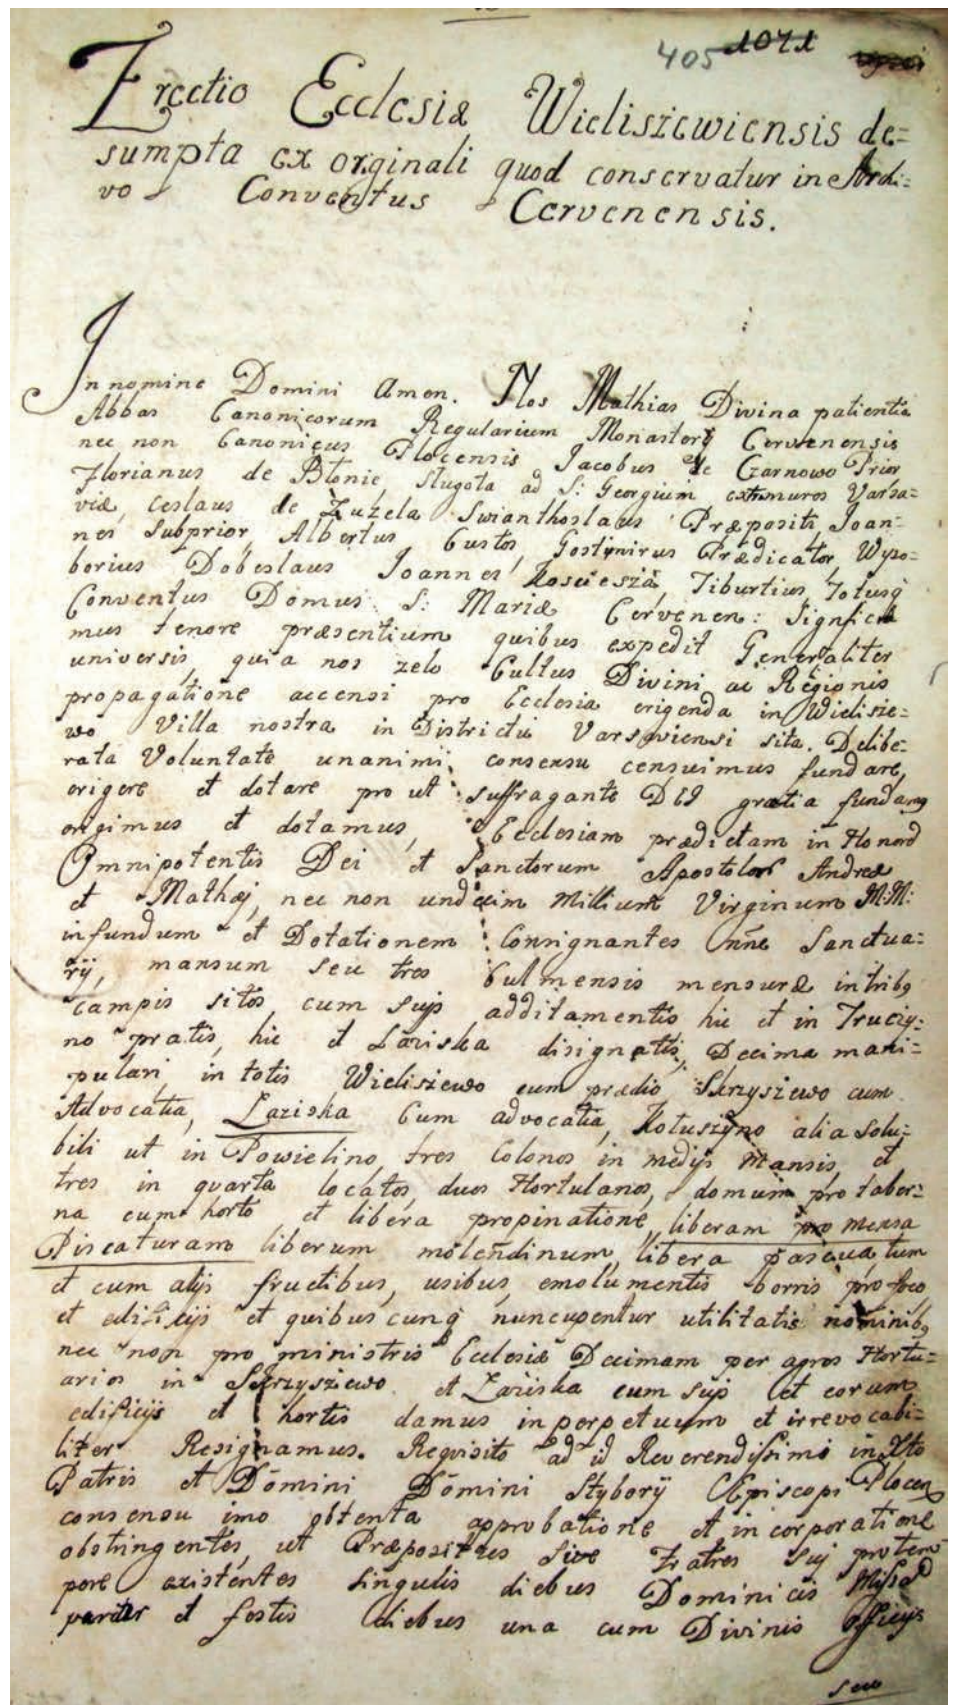 405 1071
Erectio Ecclesiæ Wieliszewiensis de=
sumpta ex orginali quod conservatur in Archi=
vo Conventus Cervenensis.
In nomine Domini Amen. Nos Mathias Divina patientia
Abbas Canonicorum Regularium Monasterÿ Cervenensis
nec non Canonicus Plocensis Jacobus de Czarnowo Prior
Florianus de Błonie, Sługota ad S: Georgium extramuros Varsa=
viæ, Ceslaus de Zuzela Swianthoslaus Præpositi, Joan=
nes Subprior, Albertus, Custos, Gostymirus Prædicator, Wyso=
borius Dobeslaus Joannes Kosciesza, Tiburtius, Totusq
Conventus Domus S: Mariæ Cervenen: Significa
mus tenore præsentium quibus expedit Generaliter
universis, quia nos zelo Cultus Divini ac Regionis
propagatione accensi pro Ecclesia erigenda in Wielisze=
wo Villa nostra in Districtu Varsaviensi sita. Delibe=
rata Voluntate unanimi, consensu censuimus fundare,
erigere et dotare pro ut suffragante DEI gratia fundamq
erigimus et dotamus, Ecclesiam prædictam in Honorē
Omnipotentis Dei et Sanctorum Apostolor Andreæ
et Mathæj, nec non undecim Millium Virginum M:M:
infundum et Dotationem Consignantes omne Sanctua=
rÿ, mansum seu tres Culmensis mensuræ intribq
campis sitos, cum suÿs additamentis hic et in Truciy=
no pratis, hic et Łaziska disignatis, Decima mani=
pulari, in totis Wieliszewo cum prædio Skrzyszewo cum
Advocatia, Laziska Cum advocatia, Kotuszyno alia Solu=
bili ut in Powielino, tres Colonos in medÿs Mansis, et
tres in quarta locatos, duos Hortulanos, domum pro taber=
na cum horto et libera propinatione, liberam pro mensa
Piscaturam liberum molendinum, libera pascua, tum
et cum alÿs fructibus, usibus, emolumentis borris pro foco,
et edificÿs et quibuscunq nuncupentur utilitatis nominibq
nec non pro ministris Ecclesiæ Decimam per agros Hortu=
arios in Skrzyszewo et Łaziska cum suÿs et eorum
edificÿs et hortis damus in perpetuum et irrevocabi=
liter Resignamus. Requisito ad id Reverendissimi in Xto
Patris et Domini Domini Styborÿ Episcopi Plocen
consensu imo obtenta approbatione et incorporatione
obstringentes, ut Præpositus sive Fratres Suj protem
pore existentes singulis diebus Dominicis Missa
pariter et festis diebus una cum Divinis Officÿs
seu